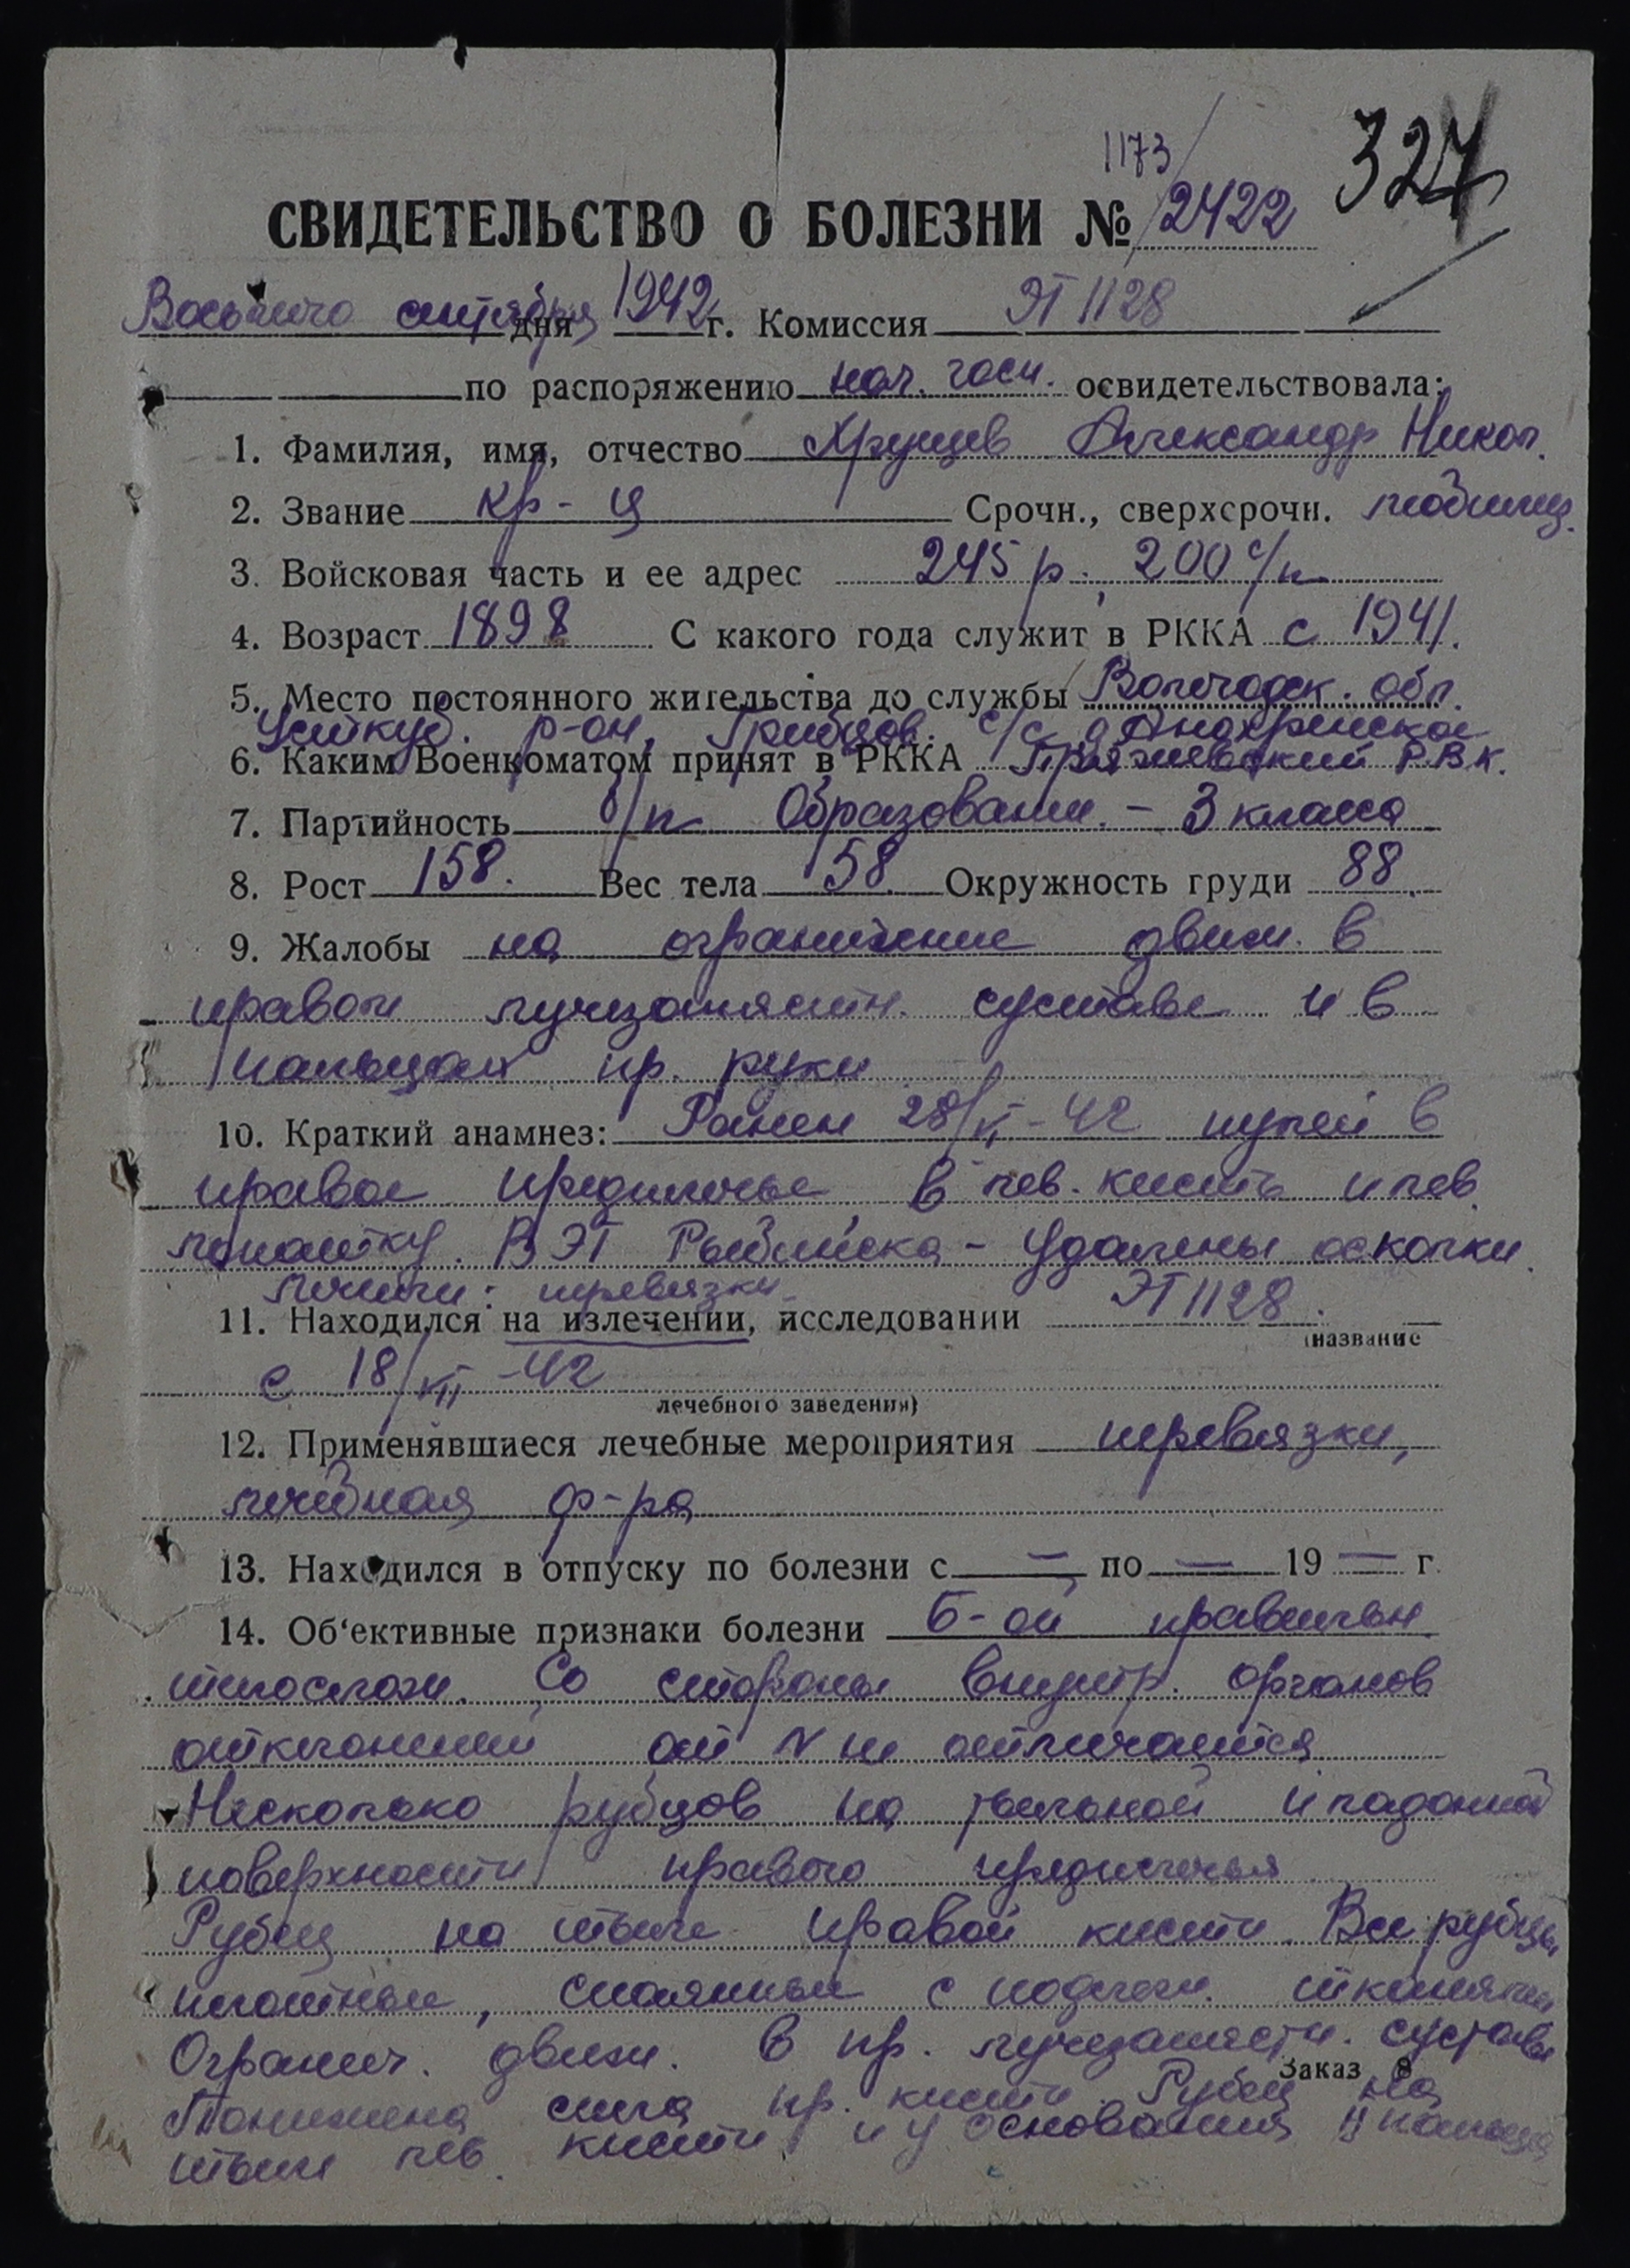 1173/
327
СВИДЕТЕЛЬСТВО О БОЛЕЗНИ № 2422
Восьмого сентября дня 1942 г. Комиссия ЭГ 1128
по распоряжению нач. госп. освидетельствовала:
1. Фамилия, имя, отчество Хрунцев Александр Никол.
2. Звание кр-ц Срочн., сверхсрочн. мобилиз.
3. Войсковая часть и ее адрес 245 р., 200 с/п
4. Возраст 1898 С какого года служит в РККА с 1941.
5. Место постоянного жительства до службы Вологодск. обл.
Усткуб. р-он, Грибцов. с/с д Анохринское
6. Каким Военкоматом принят в РККА РВК.
7. Партийность б/п Образовани. - 3 класса
8. Рост 158. Вес тела 58. Окружность груди 88.
9. Жалобы на ограничение движ. в
правом лучезапястн. суставе и в
пальцах пр. руки
10. Краткий анамнез: Ранен 28/VI-42 пулей в
правое предплечье в лев. кисть и лев.
лопатку. В ЭГ Рыбинска - удалены осколки.
лечили: перевязки.
11. Находился на излечении, исследовании ЭГ 1128.
(название
с 18/VII-42
лечебного заведения)
12. Применявшиеся лечебные мероприятия перевязки,
лечебная ф-ра
13. Находился в отпуску по болезни с — по — 19 — г.
14. Об‘ективные признаки болезни Б-ой правильн.
телослож. Со стороны внутр. органов
отклонений от N не отмечается
Несколько рубцов на тыльной и ладонной
поверхности правого предплечья
Рубец на тыле правой кисти. Все рубцы
плотные, спаянные с подлеж. тканями
Огранич. движ. в пр. лучезапястн. суставе
Заказ 8
Понижена сила пр. кисти. Рубец на
тыле лев. кисти и у основания II пальца